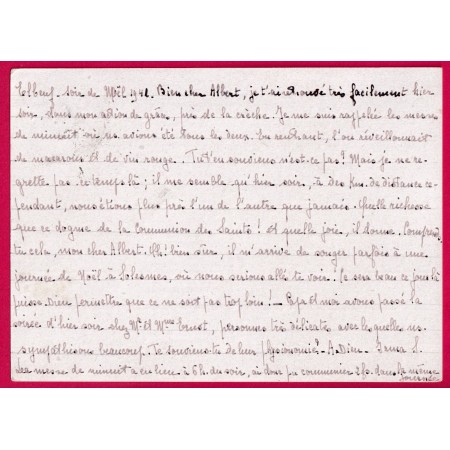 Elbeuf. soir de Noël 1941. Bien cher Albert, je t'ai retrouvé très facilement hier
soir, dans mon action de grâce, près de la crèche. Je me suis rappelée les messes
de minuit où ns avions été tous les deux. En rentrant, l'on réveillonnait
de macarons et de vin rouge. Tu t'en souviens n'est-ce pas? Mais je ne re-
grette pas ce temps là; il me semble qu'hier soir, à des Km. de distance ce-
pendant, nous étions plus près l'un de l'autre que jamais. Quelle richesse
que ce dogme de la Communion des Saints! et quelle joie, il donne. Comprends
tu cela, mon cher Albert. Oh! bien sûr, il m'arrive de songer parfois à une
journée de Noël à Solesmes, où nous serions allés te voir. Ce sera beau ce jour là
puisse Dieu permettre que ce ne soit pas trop loin! — et moi avons passé la
soirée d'hier soir chez Mr et Mme, personnes très délicates avec lesquelles ns
sympathisons beaucoup. Te souviens-tu de leur physionomie? A. Dieu. Irma S.
La messe de minuit a eu lieu à 6h. du soir, ai donc pu communier 2 fs. dans la même
journée